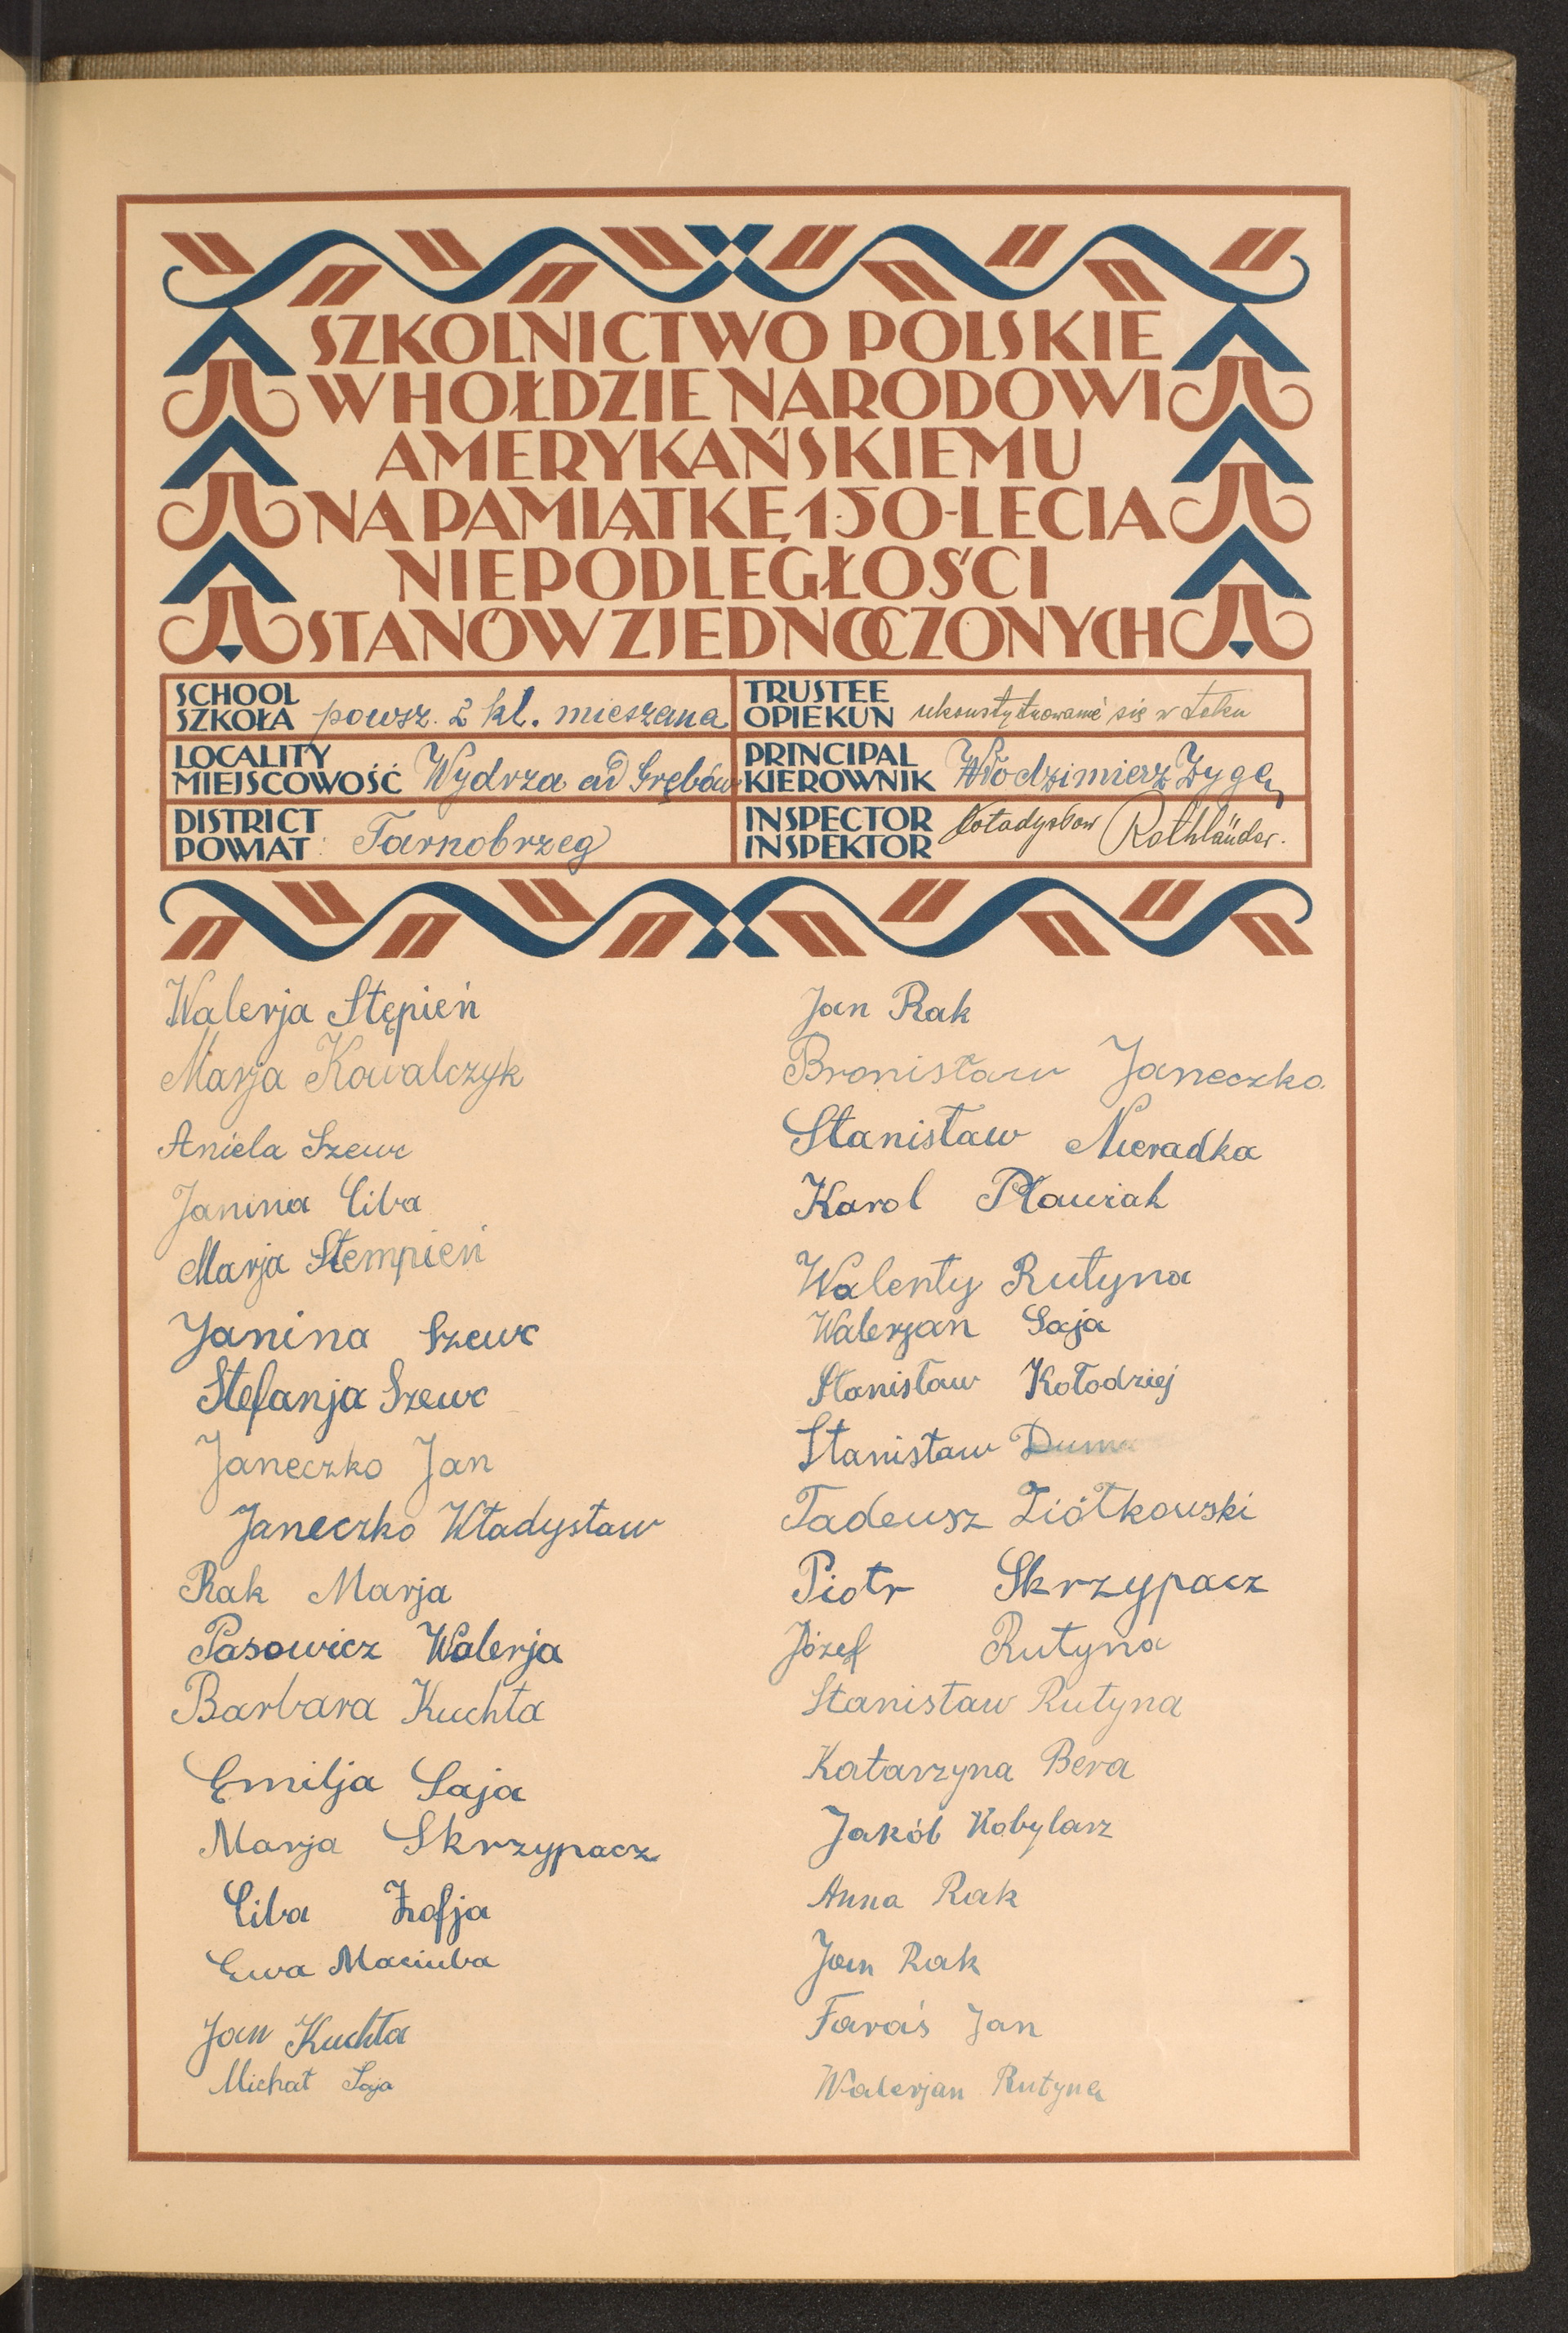 SZKOLNICTWO POLSKIE
W HOŁDZIE NARODOWI
AMERYKAŃSKIEMU
NA PAMIĄTKĘ 150-LECIA
NIEPODLEGŁOŚCI
STANÓW ZJEDNOCZONYCH
SCHOOL
SZKOŁA powsz. 2 kl. mieszana
TRUSTEE
OPIEKUN się w toku
LOCALITY
MIEJSCOWOŚĆ Wydrza ad Grębów
PRINCIPAL
KIEROWNIK Włodzimierz Zyga
DISTRICT
POWIAT: Tarnobrzeg
INSPECTOR
INSPEKTOR Władysław Rothländer.
Walerja Stępień
Marja Kowalczyk
Aniela Szewc
Janina Ciba
Marja Stempień
Janina Szewc
Stefanja Szewc
Janeczko Jan
Janeczko Władysław
Rak Marja
Pasowicz Walerja
Barbara Kuchta
Emilja Saja
Marja Skrzypacz
Ciba Zofja
Ewa Maciuba
Jan Kuchta
Michał Saja
Jan Rak
Bronisław Janeczko.
Stanisław Nieradka
Karol Pławiak
Walenty Rutyna
Walerjan Saja
Stanisław Kołodziej
Stanisław Duma
Tadeusz Ziółkowski
Piotr Skrzypacz
Józef Rutyna
Stanisław Rutyna
Katarzyna Bera
Jakób Kobylarz
Anna Rak
Jan Rak
Faraś Jan
Walerjan Rutyna